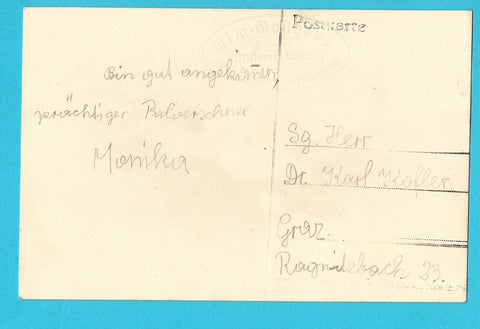 Postkarte
Bin gut angekommen,
prächtiger Pulverschnee
Monika
Sg. Herr
Dr. Karl Kofler
Graz
Ragnitzbach 33.